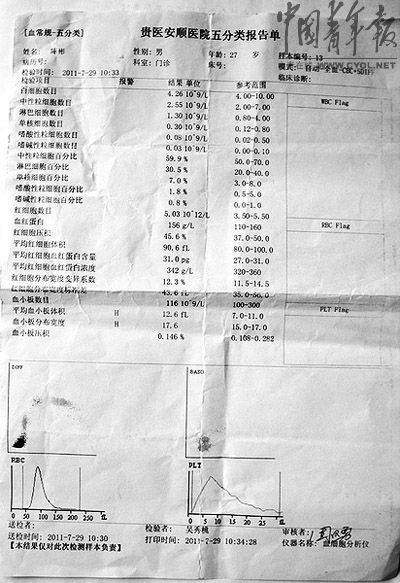 中国青年报
WWW.CYOL.NET
[血常规-五分类] 贵医安顺医院五分类报告单
姓名: 彬 性别: 男 年龄: 27 岁 样本编号: 13
病历号: 科室: 门诊 床号: 模式: 自动-全血-CBC+5DIFF
检验时间: 2011-7-29 10:33 临床诊断:
检验项目 报警 结果 单位 参考范围
白细胞数目 4.26 10^9/L 4.00-10.00
中性粒细胞数目 2.55 10^9/L 2.00-7.00
淋巴细胞数目 1.30 10^9/L 0.80-4.00
单核细胞数目 0.30 10^9/L 0.12-0.80
嗜酸性粒细胞数目 0.08 10^9/L 0.02-0.50
嗜碱性粒细胞数目 0.03 10^9/L 0.00-0.10
中性粒细胞百分比 59.9 % 50.0-70.0
淋巴细胞百分比 30.5 % 20.0-40.0
单核细胞百分比 7.0 % 3.0-8.0
嗜酸性粒细胞百分比 1.8 % 0.5-5.0
嗜碱性粒细胞百分比 0.8 % 0.0-1.0
红细胞数目 5.03 10^12/L 3.50-5.50
血红蛋白 156 g/L 110-160
红细胞压积 45.6 % 37.0-50.0
平均红细胞体积 90.6 fL 80.0-100.0
平均红细胞血红蛋白含量 31.0 pg 27.0-31.0
平均红细胞血红蛋白浓度 342 g/L 320-360
红细胞分布宽度变异系数 12.3 % 11.5-14.5
红细胞分布宽度标准差 43.6 fL 35.0-56.0
血小板数目 116 10^9/L 100-300
平均血小板体积 H 12.6 fL 7.0-11.0
血小板分布宽度 H 17.6 15.0-17.0
血小板压积 0.146 % 0.108-0.282
WBC Flag
RBC Flag
PLT Flag
DIFF BASO
RBC PLT
0 50 100 200 300 fL 0 5 10 20 30 fL
送检者: 检验者: 吴秀桃 审核者:
送检时间: 2011-7-29 10:30 打印时间: 2011-7-29 10:34:28 仪器名称: 血细胞分析仪
【本结果仅对此次检测样本负责】